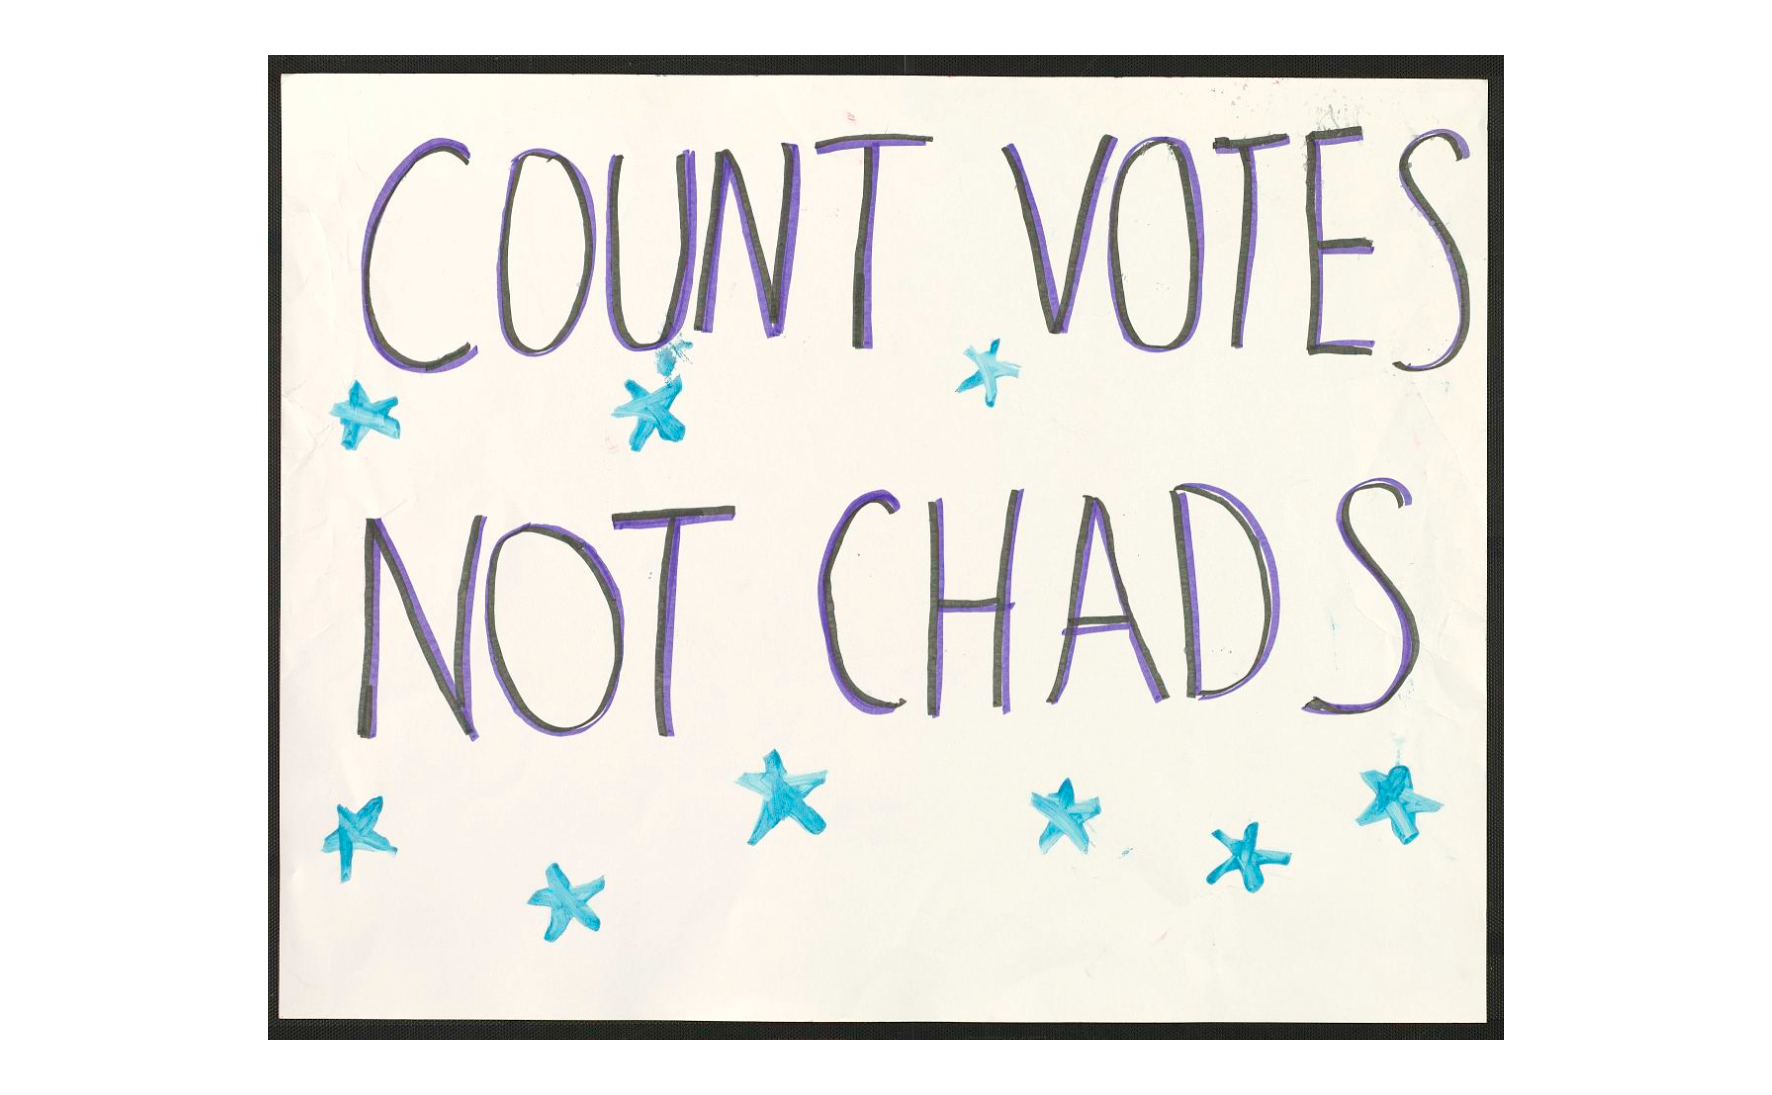 COUNT VOTES
NOT CHADS